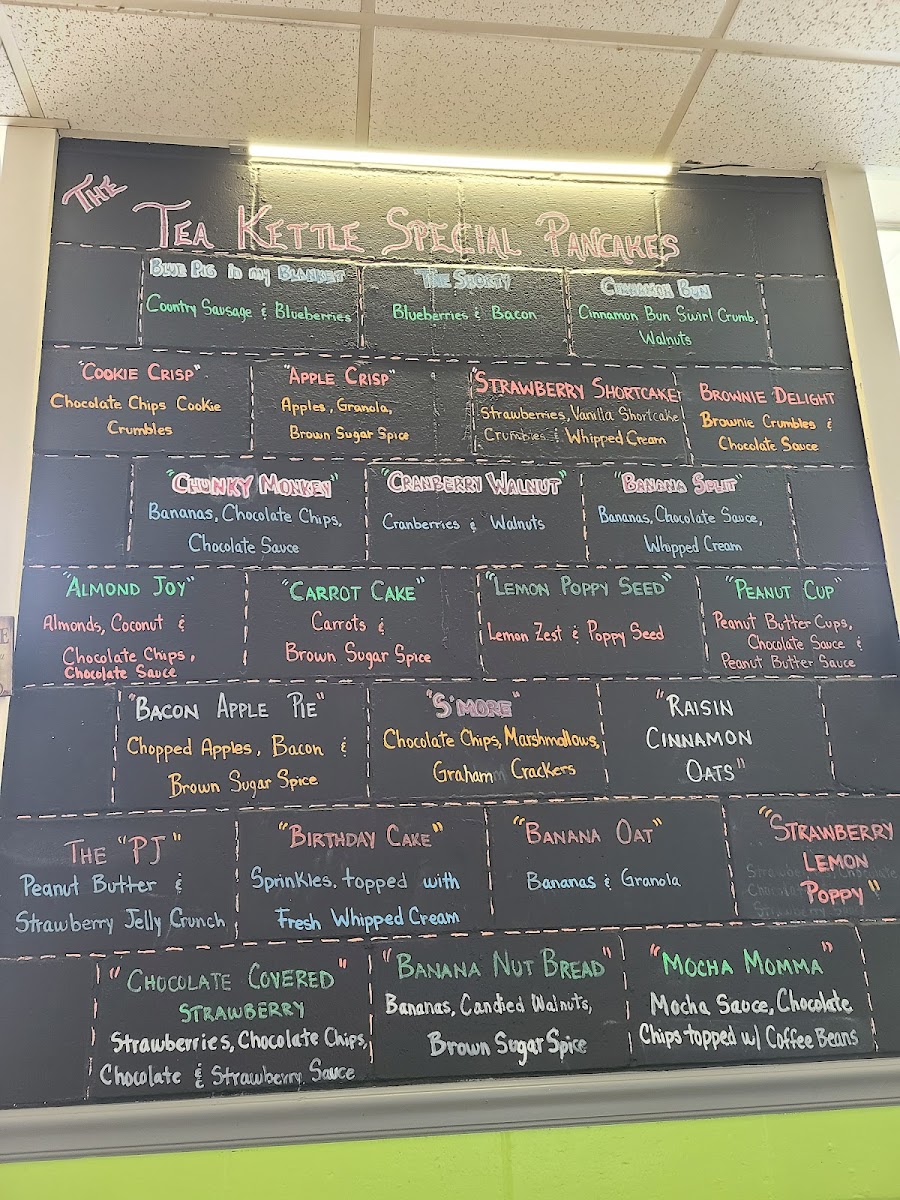 THE
TEA KETTLE SPECIAL PANCAKES
BLUE PIG in my BLANKET
Country Sausage & Blueberries
THE SHORTY
Blueberries & Bacon
CINNAMON BUN
Cinnamon Bun Swirl Crumb,
Walnuts
"COOKIE CRISP"
Chocolate Chips Cookie
Crumbles
"APPLE CRISP"
Apples, Granola,
Brown Sugar Spice
"STRAWBERRY SHORTCAKE
Strawberries, Vanilla Shortcake
Crumbles & Whipped Cream
BROWNIE DELIGHT
Brownie Crumbles &
Chocolate Sauce
"CHUNKY MONKEY"
Bananas, Chocolate Chips,
Chocolate Sauce
"CRANBERRY WALNUT"
Cranberries & Walnuts
"BANANA SPLIT"
Bananas, Chocolate Sauce,
Whipped Cream
"ALMOND JOY"
Almonds, Coconut &
Chocolate Chips,
Chocolate Sauce
"CARROT CAKE"
Carrots &
Brown Sugar Spice
"LEMON POPPY SEED"
Lemon Zest & Poppy Seed
"PEANUT CUP"
Peanut Butter Cups,
Chocolate Sauce &
Peanut Butter Sauce
"BACON APPLE PIE"
Chopped Apples, Bacon &
Brown Sugar Spice
"S'MORE"
Chocolate Chips, Marshmallows,
Graham Crackers
"RAISIN
CINNAMON
OATS"
THE "PJ"
Peanut Butter &
Strawberry Jelly Crunch
"BIRTHDAY CAKE"
Sprinkles, topped with
Fresh Whipped Cream
"BANANA OAT"
Bananas & Granola
"STRAWBERRY
LEMON
POPPY"
"CHOCOLATE COVERED"
STRAWBERRY
Strawberries, Chocolate Chips,
Chocolate & Strawberry Sauce
"BANANA NUT BREAD"
Bananas, Candied Walnuts,
Brown Sugar Spice
"MOCHA MOMMA"
Mocha Sauce, Chocolate
Chips topped w/ Coffee Beans